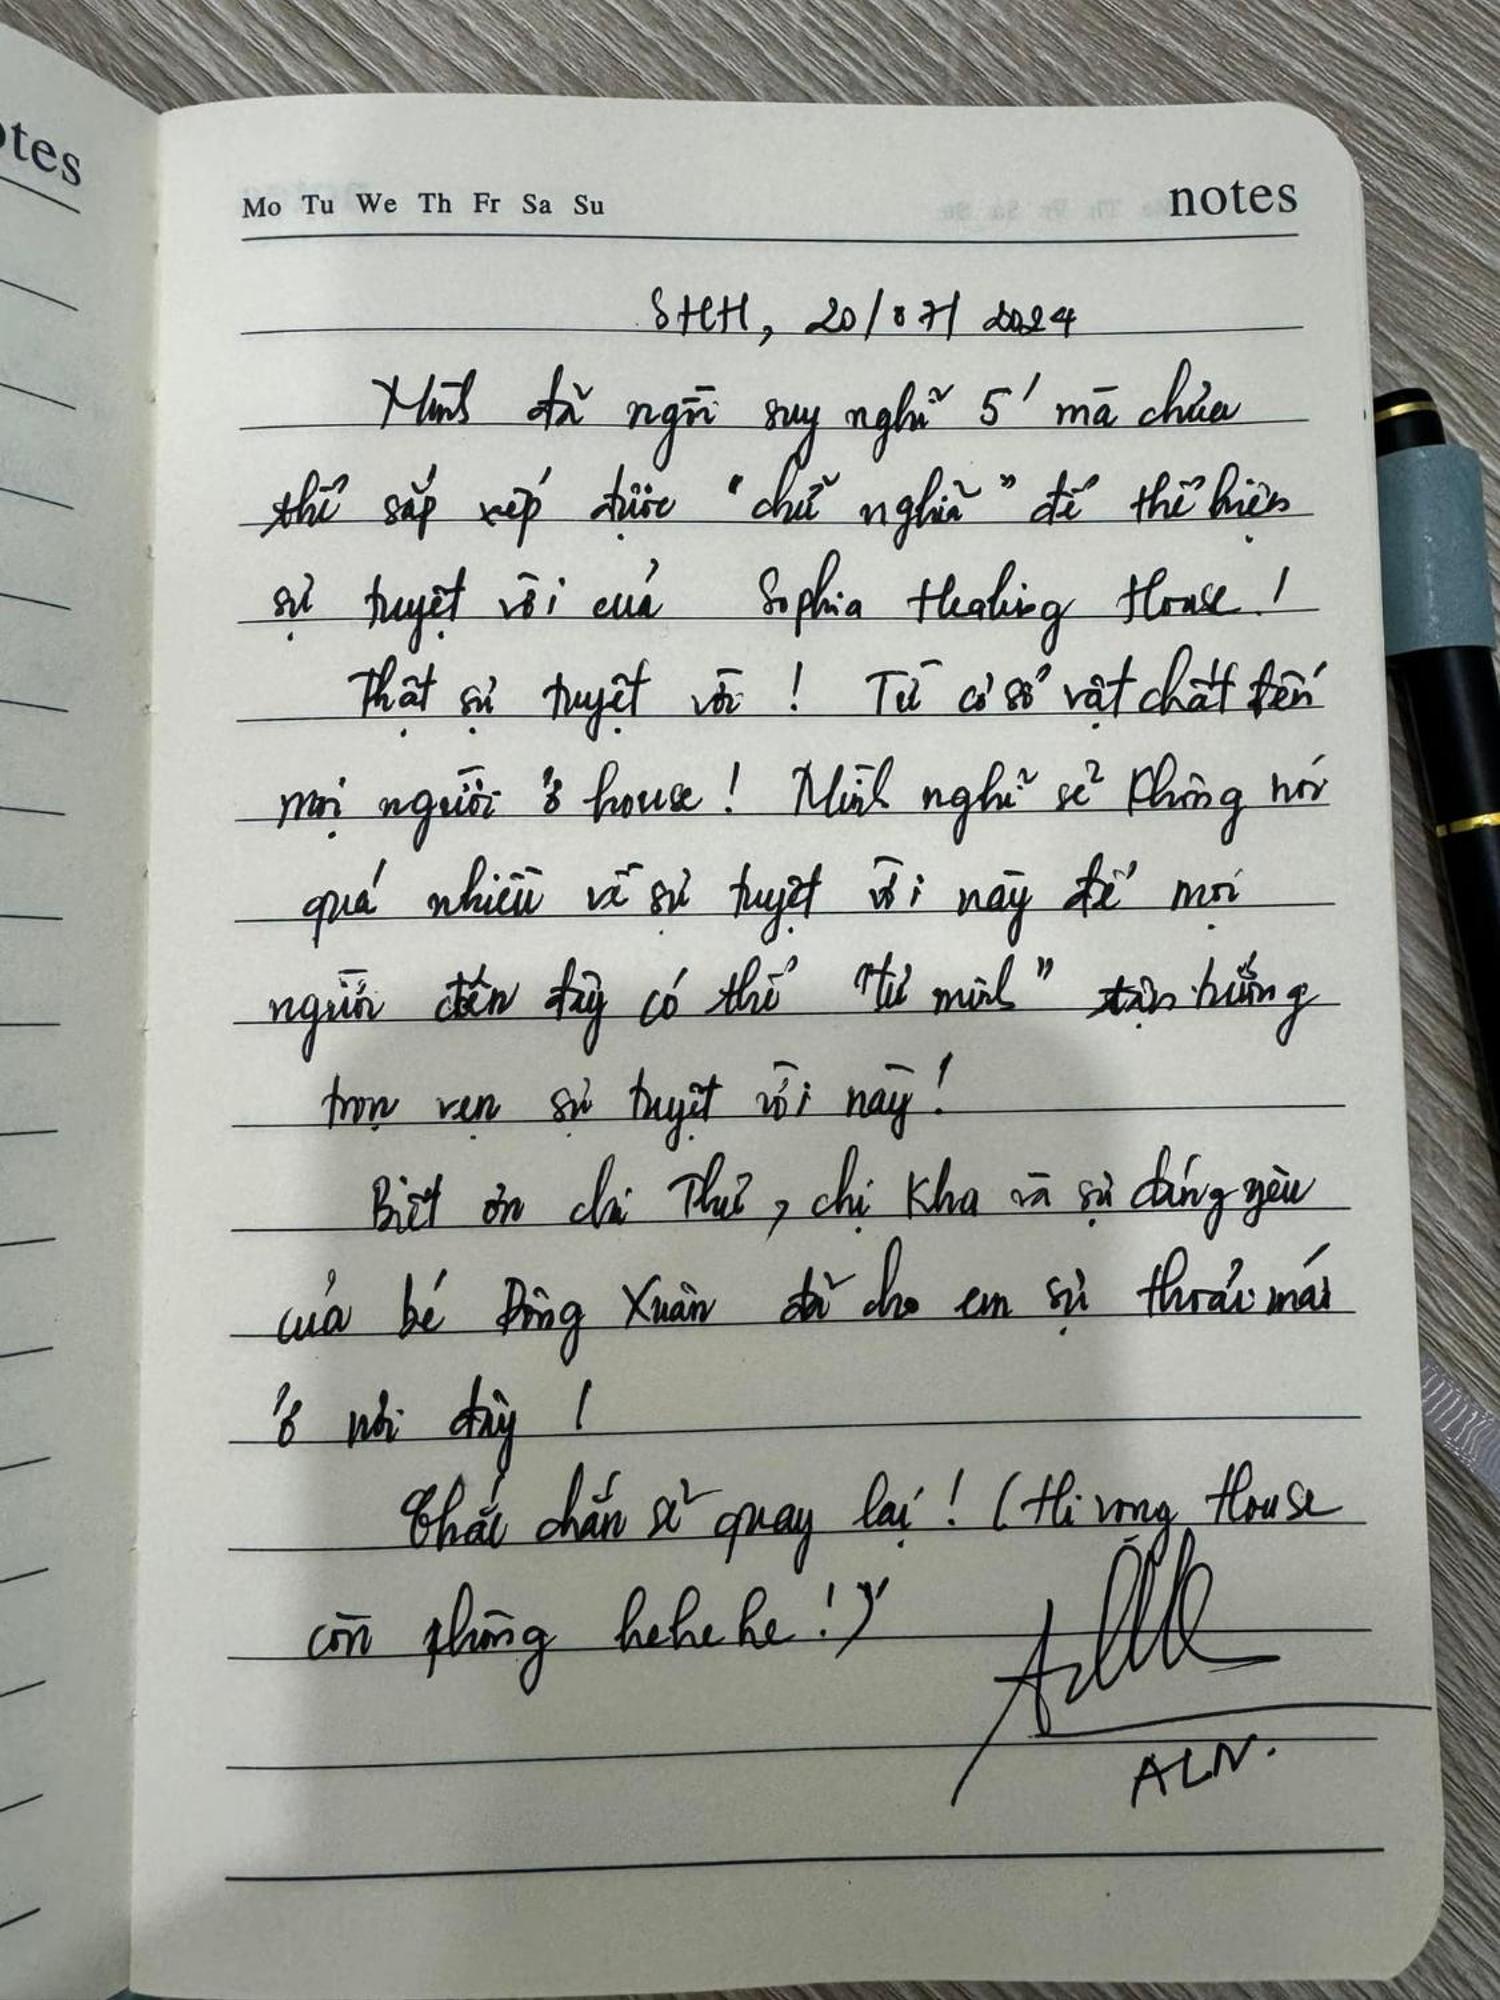 otes
Mo Tu We Th Fr Sa Su notes
SHH, 20/07/2024
Mình đã ngồi suy nghĩ 5' mà chưa
thể sắp xếp được "chữ nghĩa" để thể hiện
sự tuyệt vời của Sophia Healing House!
Thật sự tuyệt vời! Từ cơ sở vật chất đến
mọi người ở house! Mình nghĩ sẽ không nói
quá nhiều về sự tuyệt vời này để mọi
người đến đây có thể "tự mình" tận hưởng
trọn vẹn sự tuyệt vời này!
Biết ơn chị Thư, chị Kha và sự đáng yêu
của bé Đông Xuân đã cho em sự thoải mái
ở nơi đây!
Chắc chắn sẽ quay lại! (Hi vọng House
còn phòng hehehe!)
ALN.